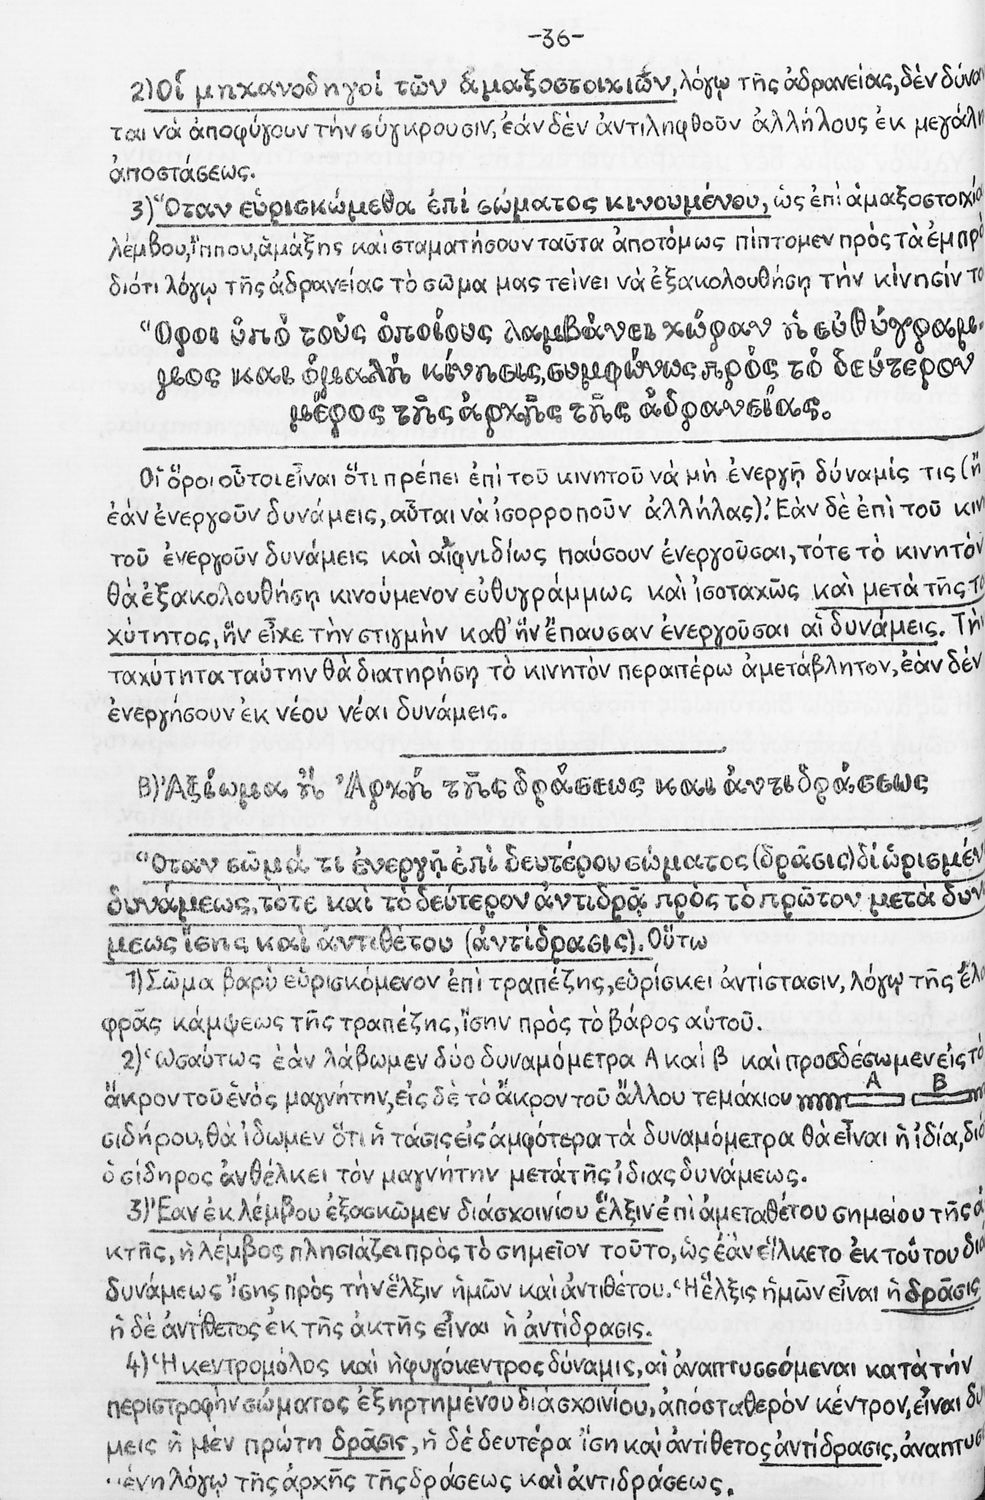 -36-
2) Οἱ μηχανοδηγοί τῶν ἁμαξοστοιχιῶν, λόγῳ τῆς ἀδρανείας, δέν δύναν
ται νὰ ἀποφύγουν τὴν σύγκρουσιν, ἐάν δὲν ἀντιληφθοῦν ἀλλήλους ἐκ μεγάλη
ἀποστάσεως.
3) Ὅταν εὑρισκώμεθα ἐπί σώματος κινουμένου, ὡς ἐπί ἁμαξοστοιχία
λέμβου, ἵππου, ἁμάξης καὶ σταματήσουν ταῦτα ἀποτόμως πίπτομεν πρὸς τὰ ἐμπρὸ
διότι λόγῳ τῆς ἀδρανείας τὸ σῶμα μας τείνει νὰ ἐξακολουθήσῃ τὴν κίνησίν το
Ὅροι ὑπὸ τούς ὁποίους λαμβάνει χώραν ἡ εὐθύγραμ-
μος καὶ ὁμαλή κίνησις, συμφώνως πρὸς τὸ δεύτερον
μέρος τῆς ἀρχῆς τῆς ἀδρανείας.
Οἱ ὅροι οὗτοι εἶναι ὅτι πρέπει ἐπί τοῦ κινητοῦ νὰ μὴ ἐνεργῇ δύναμίς τις (ἤ
ἐάν ἐνεργοῦν δυνάμεις, αὗται νὰ ἰσορροποῦν ἀλλήλας). Ἐὰν δὲ ἐπὶ τοῦ κιν
τοῦ ἐνεργοῦν δυνάμεις καὶ αἰφνιδίως παύσουν ἐνεργοῦσαι, τότε τὸ κινητὸν
θὰ ἐξακολουθήσῃ κινούμενον εὐθυγράμμως καὶ ἰσοταχῶς καὶ μετά τῆς τα
χύτητος, ἥν εἶχε τὴν στιγμὴν καθ' ἥν ἔπαυσαν ἐνεργοῦσαι αἱ δυνάμεις. Τὴν
ταχύτητα ταύτην θὰ διατηρήσῃ τὸ κινητόν περαιτέρω ἀμετάβλητον, ἐὰν δὲν
ἐνεργήσουν ἐκ νέου νέαι δυνάμεις.
Β) Ἀξίωμα ἤ Ἀρχή τῆς δράσεως καὶ ἀντιδράσεως
Ὅταν σῶμά τι ἐνεργῇ ἐπὶ δευτέρου σώματος (δρᾶσις) δι' ὡρισμέν
δυνάμεως, τότε καὶ τὸ δεύτερον ἀντιδρᾷ πρὸς τὸ πρῶτον μετὰ δυν
μεως ἴσης καὶ ἀντιθέτου (ἀντίδρασις). Οὕτω
1) Σῶμα βαρὺ εὑρισκόμενον ἐπί τραπέζης, εὑρίσκει ἀντίστασιν, λόγῳ τῆς ἐλα
φρᾶς κάμψεως τῆς τραπέζης, ἴσην πρὸς τὸ βάρος αὐτοῦ.
2) Ὡσαύτως ἐάν λάβωμεν δύο δυναμόμετρα Α καὶ Β καὶ προσδέσωμεν εἰς τὸ
ἄκρον τοῦ ἑνός μαγνήτην, εἰς δὲ τὸ ἄκρον τοῦ ἄλλου τεμάχιον Α Β
σιδήρου, θὰ ἴδωμεν ὅτι ἡ τάσις εἰς ἀμφότερα τὰ δυναμόμετρα θὰ εἶναι ἡ ἰδία, διό
ὁ σίδηρος ἀνθέλκει τὸν μαγνήτην μετὰ τῆς ἰδίας δυνάμεως.
3) Ἐαν ἐκ λέμβου ἐξασκῶμεν διὰ σχοινίου ἕλξιν ἐπὶ ἀμεταθέτου σημείου τῆς ἀ
κτῆς, ἡ λέμβος πλησιάζει πρὸς τὸ σημεῖον τοῦτο, ὡς ἐὰν εἵλκετο ἐκ τούτου διὰ
δυνάμεως ἴσης πρὸς τὴν ἕλξιν ἡμῶν καὶ ἀντιθέτου. Ἡ ἕλξις ἡμῶν εἶναι ἡ δρᾶσις
ἡ δὲ ἀντίθετος ἐκ τῆς ἀκτῆς εἶναι ἡ ἀντίδρασις.
4) Ἡ κεντρομόλος καὶ ἡ φυγόκεντρος δύναμις, αἱ ἀναπτυσσόμεναι κατὰ τὴν
περιστροφὴν σώματος ἐξηρτημένου διὰ σχοινίου, ἀπὸ σταθερὸν κέντρον, εἶναι δυ
μεις ἡ μὲν πρώτη δρᾶσις, ἡ δὲ δευτέρα ἴση καὶ ἀντίθετος ἀντίδρασις, ἀναπτυσ
μένη λόγῳ τῆς ἀρχῆς τῆς δράσεως καὶ ἀντιδράσεως.